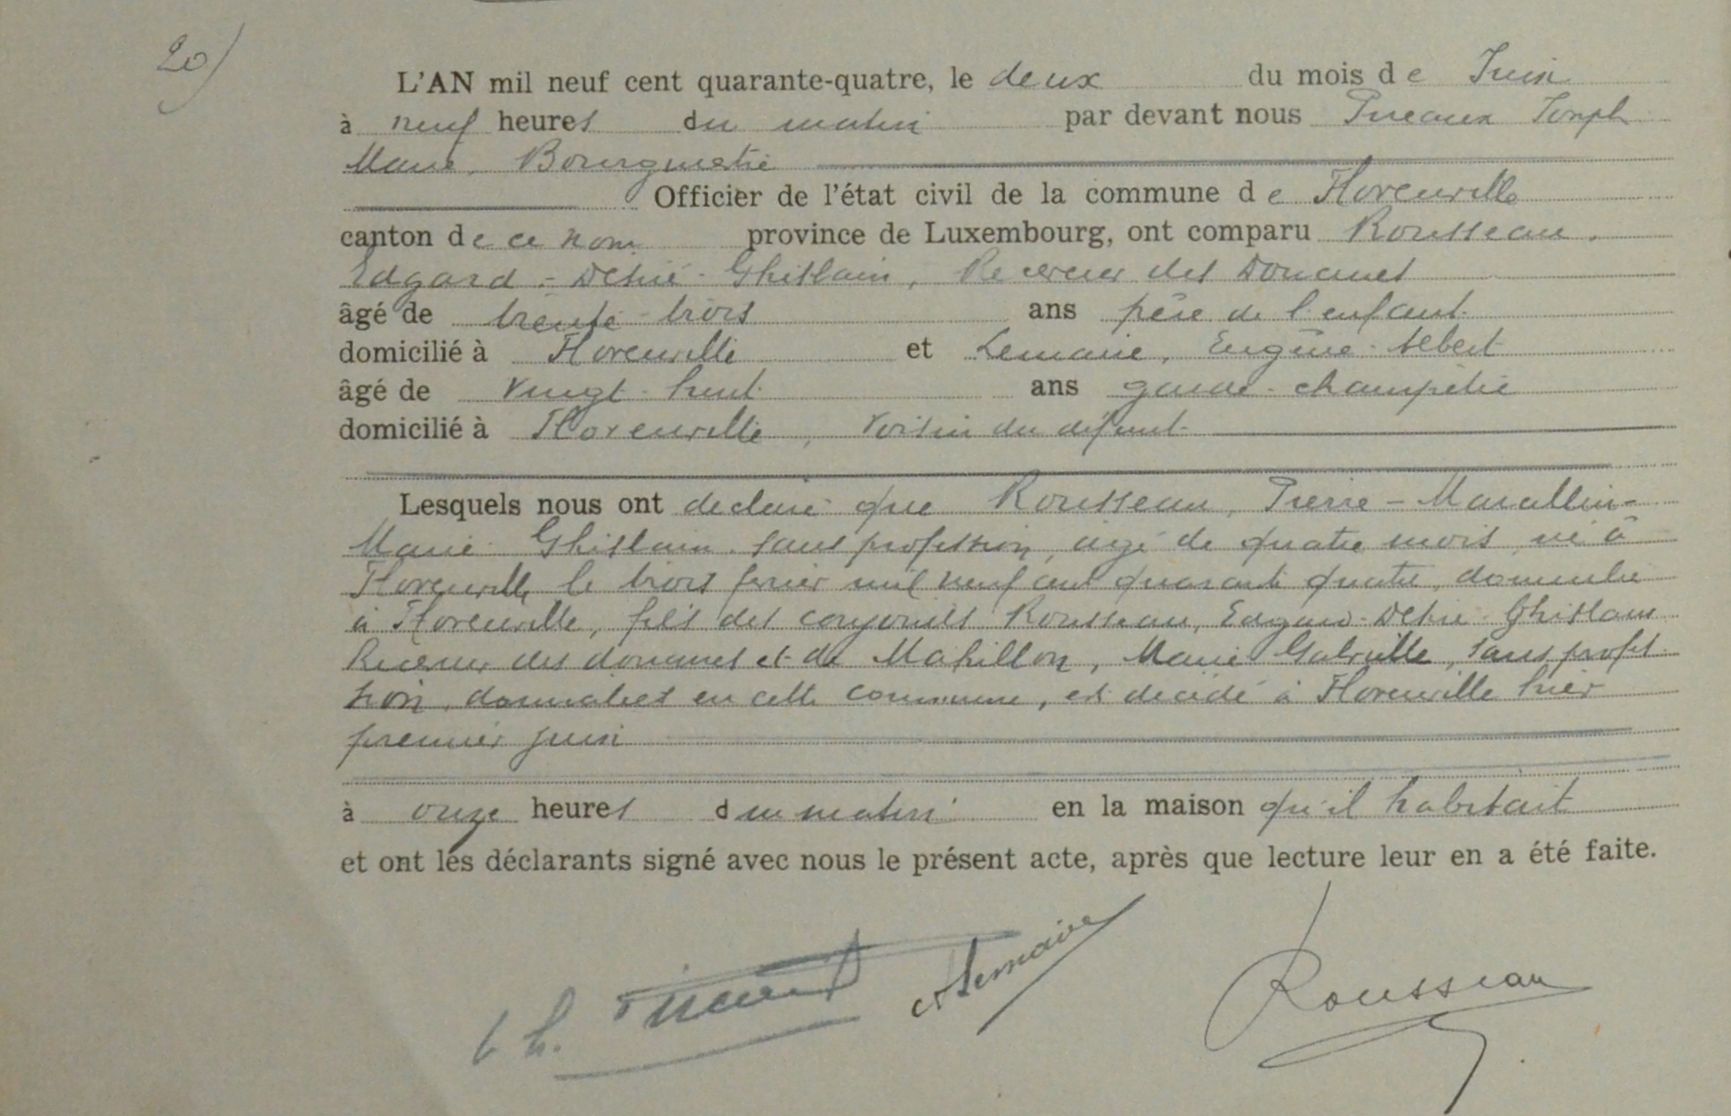 20)
L'AN mil neuf cent quarante-quatre, le deux du mois de Juin
à neuf heures du matin par devant nous Joseph
Marie, Bourgmestre
Officier de l'état civil de la commune de Florenville
canton de ce nom province de Luxembourg, ont comparu Rousseau,
Edgard-Désiré-Ghislain, Receveur des Douanes
âgé de trente-trois ans père de l'enfant
domicilié à Florenville et Lemaire, Eugène-Albert
âgé de vingt-huit ans garde-champêtre
domicilié à Florenville, voisin du défunt
Lesquels nous ont déclaré que Rousseau, Pierre-Marcellin-
Marie-Ghislain, sans profession, âgé de quatre mois, né à
Florenville le trois février mil neuf cent quarante quatre, domicilié
à Florenville, fils des conjoints Rousseau, Edgard-Désiré-Ghislain
Receveur des douanes et de Mahillon, Marie Gabrielle, sans profes-
sion, domiciliés en cette commune, est décédé à Florenville hier
premier juin
à onze heures du matin en la maison qu'il habitait
et ont les déclarants signé avec nous le présent acte, après que lecture leur en a été faite.
Lemaire
Rousseau